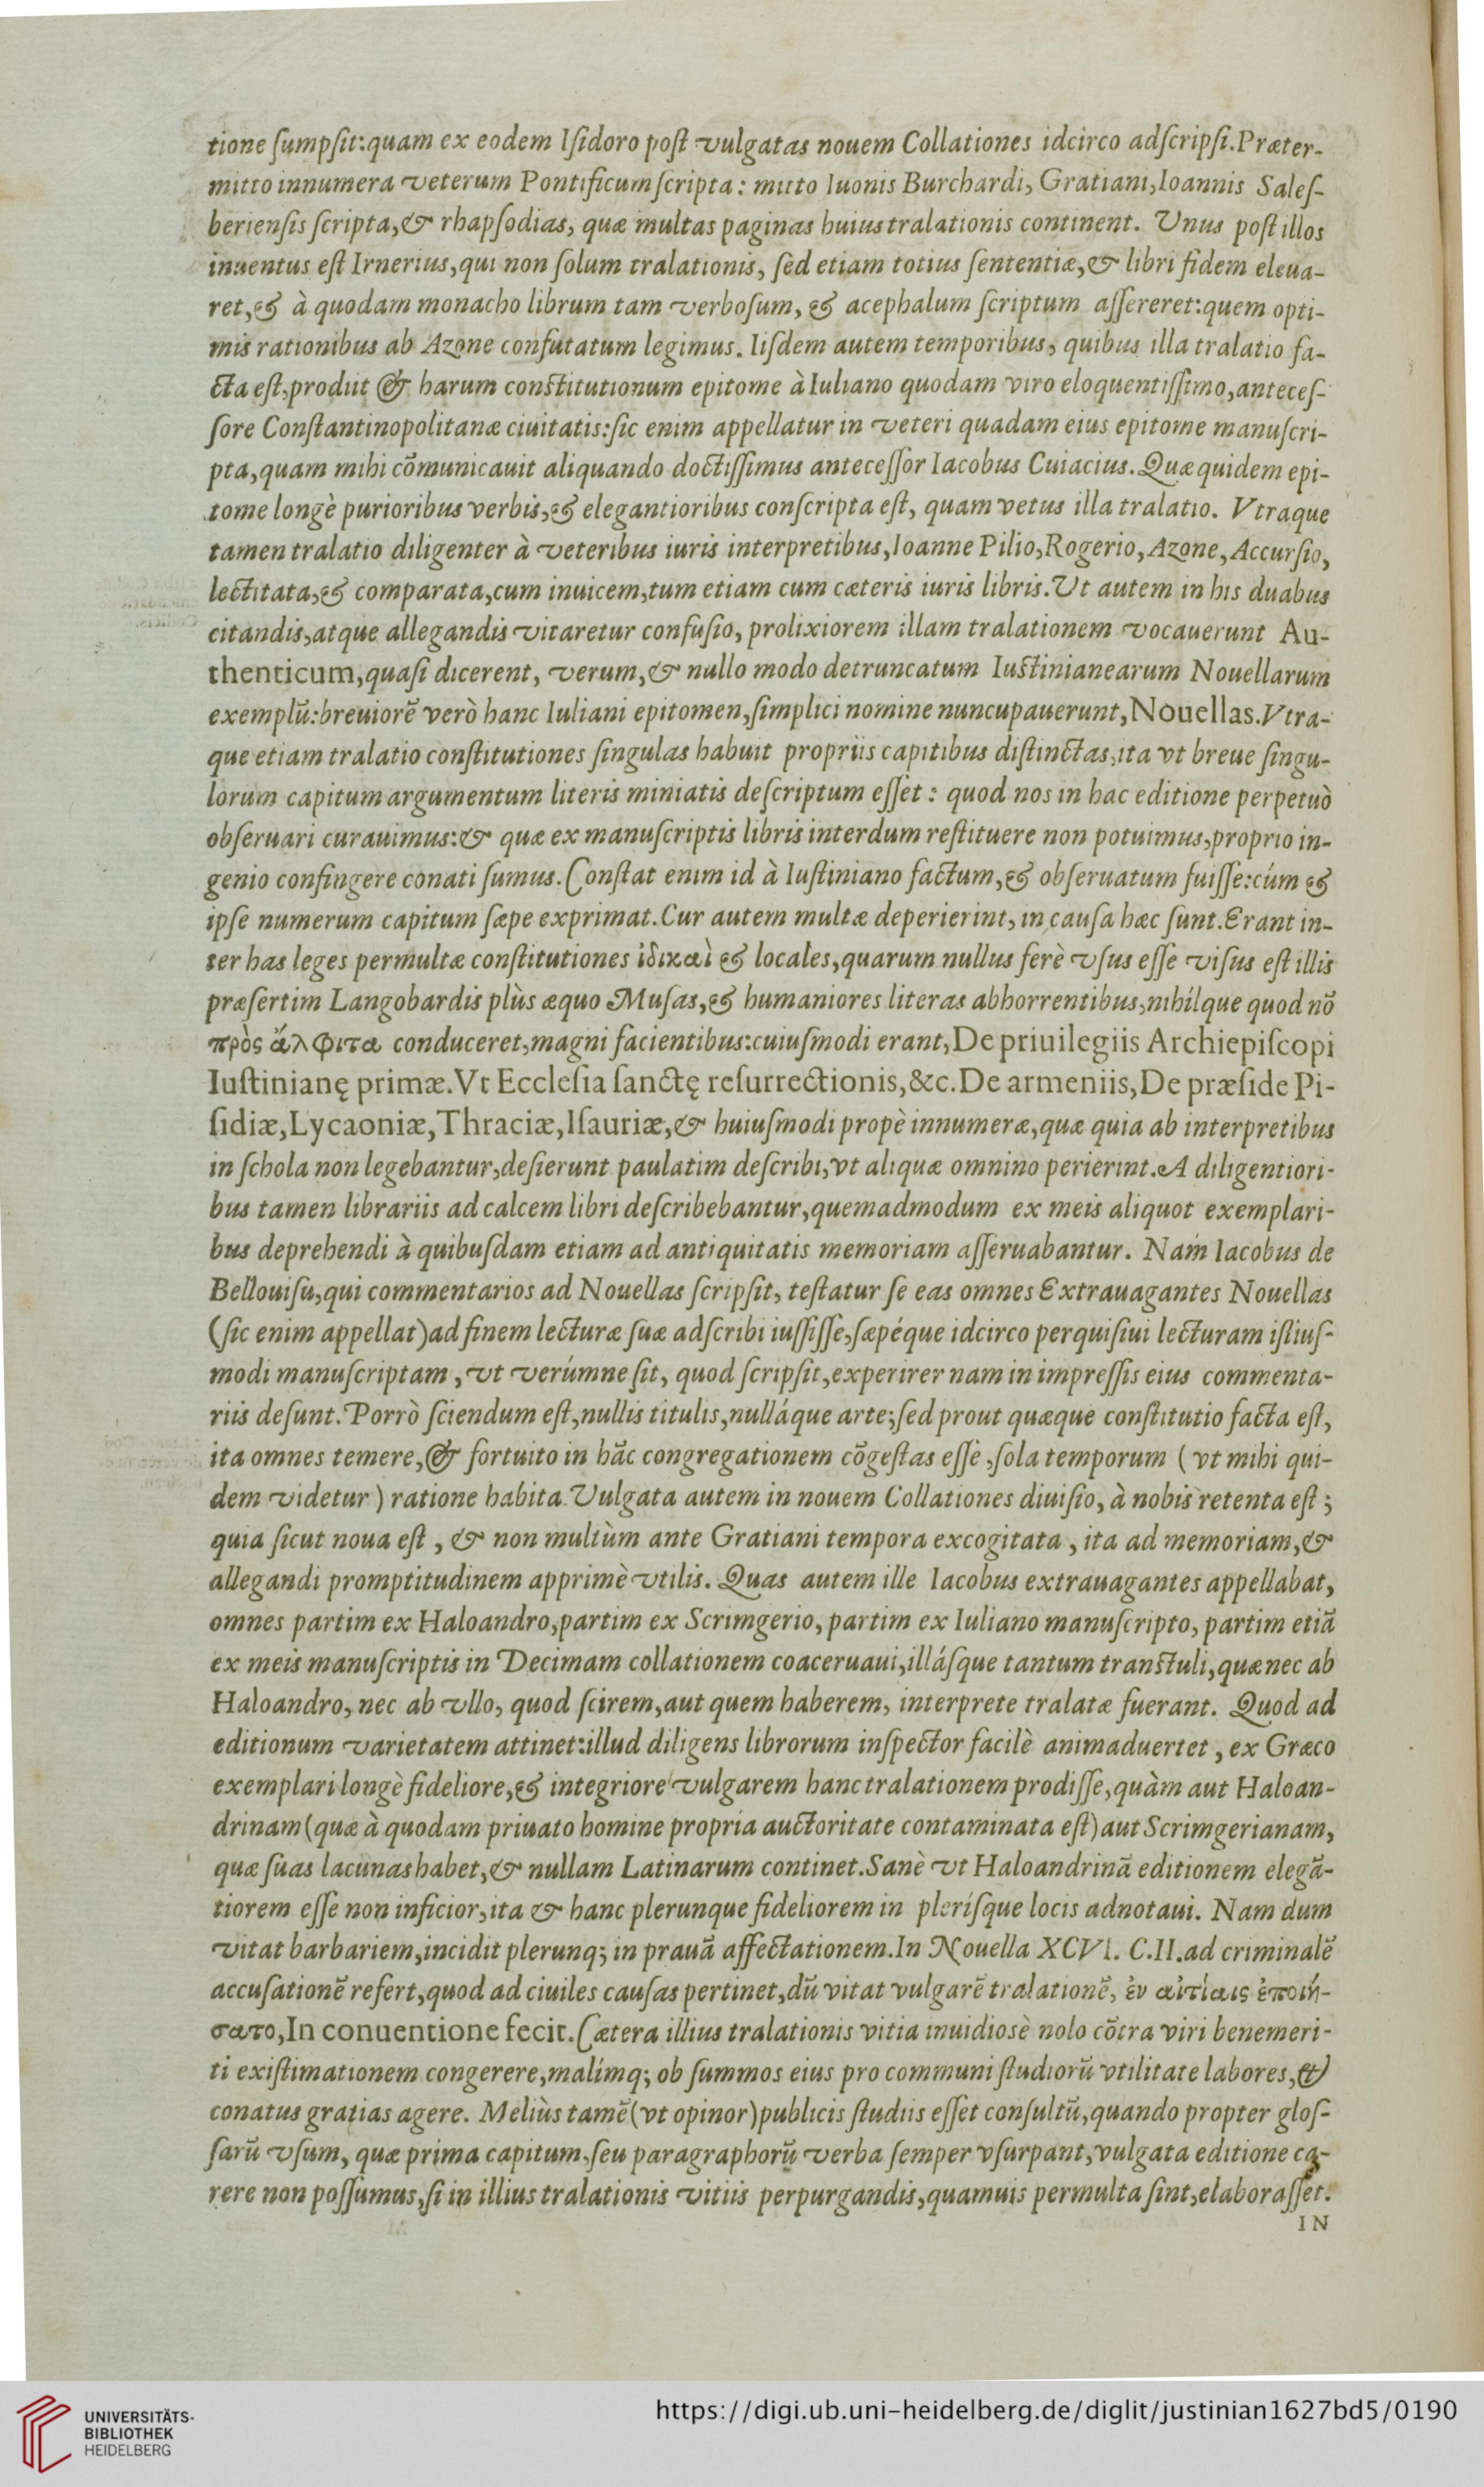 tione ſumpſit: quam ex eodem Iſidoro poſt vulgatas nouem Collationes idcirco adſcripſi. Præter-
mitto innumera veterum Pontificum ſcripta: mitto Iuonis Burchardi, Gratiani, Ioannis Saleſ-
berienſis ſcripta, & rhapſodias, quæ multas paginas huius tralationis continent. Unus poſt illos
inuentus eſt Irnerius, qui non ſolum tralationis, ſed etiam totius ſententiæ, & libri fidem eleua-
ret, & à quodam monacho librum tam verboſum, & acephalum ſcriptum aſſereret: quem opti-
mis rationibus ab Azone confutatum legimus. Iiſdem autem temporibus, quibus illa tralatio fa-
cta eſt, prodiit & harum conſtitutionum epitome à Iuliano quodam viro eloquentiſſimo, anteceſ-
ſore Conſtantinopolitanæ ciuitatis: ſic enim appellatur in veteri quadam eius epitome manuſcri-
pta, quam mihi cõmunicauit aliquando doctiſſimus anteceſſor Iacobus Cuiacius. Quæ quidem epi-
tome longè purioribus verbis, & elegantioribus conſcripta eſt, quam vetus illa tralatio. Vtraque
tamen tralatio diligenter à veteribus iuris interpretibus, Ioanne Pilio, Rogerio, Azone, Accurſio,
lectitata, & comparata, cum inuicem, tum etiam cum cæteris iuris libris. Ut autem in his duabus
citandis, atque allegandis vitaretur confuſio, prolixiorem illam tralationem vocauerunt Au-
thenticum, quaſi dicerent, verum, & nullo modo detruncatum Iuſtinianearum Nouellarum
exemplũ: breuiorẽ verò hanc Iuliani epitomen, ſimplici nomine nuncupauerunt, Nouellas. Vtra-
que etiam tralatio conſtitutiones ſingulas habuit propriis capitibus diſtinctas, ita vt breue ſingu-
lorum capitum argumentum literis miniatis deſcriptum eſſet: quod nos in hac editione perpetuò
obſeruari curauimus: & quæ ex manuſcriptis libris interdum reſtituere non potuimus, proprio in-
genio confingere conati ſumus. Conſtat enim id à Iuſtiniano factum, & obſeruatum fuiſſe: cúm &
ipſe numerum capitum ſæpe exprimat. Cur autem multæ deperierint, in cauſa hæc ſunt. Erant in-
ter has leges permultæ conſtitutiones ἰδικαὶ & locales, quarum nullus ferè vſus eſſe viſus eſt illis
præſertim Langobardis plùs æquo Muſas, & humaniores literas abhorrentibus, nihílque quod nõ
πρὸς ἄλφιτα conduceret, magni facientibus: cuiuſmodi erant, De priuilegiis Archiepiſcopi
Iuſtinianę primæ. Vt Eccleſia ſanctę reſurrectionis, &c. De armeniis, De præſide Pi-
ſidiæ, Lycaoniæ, Thraciæ, Iſauriæ, & huiuſmodi propè innumeræ, quæ quia ab interpretibus
in ſchola non legebantur, deſierunt paulatim deſcribi, vt aliquæ omnino perierint. A diligentiori-
bus tamen librariis ad calcem libri deſcribebantur, quemadmodum ex meis aliquot exemplari-
bus deprehendi à quibuſdam etiam ad antiquitatis memoriam aſſeruabantur. Nam Iacobus de
Bellouiſu, qui commentarios ad Nouellas ſcripſit, teſtatur ſe eas omnes Extrauagantes Nouellas
(ſic enim appellat) ad finem lecturæ ſuæ adſcribi iuſſiſſe, ſæpéque idcirco perquiſiui lecturam iſtiuſ-
modi manuſcriptam, vt verúmne ſit, quod ſcripſit, experirer nam in impreſſis eius commenta-
riis deſunt. Porrò ſciendum eſt, nullis titulis, nulláque arte; ſed prout quæque conſtitutio facta eſt,
ita omnes temere, & fortuito in hãc congregationem cõgeſtas eſſe, ſola temporum (vt mihi qui-
dem videtur) ratione habita. Uulgata autem in nouem Collationes diuiſio, à nobis retenta eſt;
quia ſicut noua eſt, & non multùm ante Gratiani tempora excogitata, ita ad memoriam, &
allegandi promptitudinem apprimè vtilis. Quas autem ille Iacobus extrauagantes appellabat,
omnes partim ex Haloandro, partim ex Scrimgerio, partim ex Iuliano manuſcripto, partim etiã
ex meis manuſcriptis in Decimam collationem coaceruaui, illáſque tantum tranſtuli, quæ nec ab
Haloandro, nec ab vllo, quod ſcirem, aut quem haberem, interprete tralatæ fuerant. Quod ad
editionum varietatem attinet: illud diligens librorum inſpector facilè animaduertet, ex Græco
exemplari longè fideliore, & integriore vulgarem hanc tralationem prodiſſe, quàm aut Haloan-
drinam (quæ à quodam priuato homine propria auctoritate contaminata eſt) aut Scrimgerianam,
quæ ſuas lacunas habet, & nullam Latinarum continet. Sanè vt Haloandrinã editionem elegã-
tiorem eſſe non inficior, ita & hanc plerunque fideliorem in pleríſque locis adnotaui. Nam dum
vitat barbariem, incidit plerunq; in prauã affectationem. In Nouella XCVI. C.II. ad criminalẽ
accuſationẽ refert, quod ad ciuiles cauſas pertinet, dũ vitat vulgarẽ tralationẽ, ἐν αἰτίαις ἐποιή-
σατο, In conuentione fecit. Cætera illius tralationis vitia inuidiosè nolo cõtra viri benemeri-
ti exiſtimationem congerere, malímq; ob ſummos eius pro communi ſtudiorũ vtilitate labores, &
conatus gratias agere. Meliùs tamẽ (vt opinor) publicis ſtudiis eſſet conſultũ, quando propter gloſ-
ſarũ vſum, quæ prima capitum, ſeu paragraphorũ verba ſemper vſurpant, vulgata editione ca-
rere non poſſumus, ſi in illius tralationis vitiis perpurgandis, quamuis permulta ſint, elaboraſſet.
IN
UNIVERSITÄTS-
BIBLIOTHEK
HEIDELBERG
https://digi.ub.uni-heidelberg.de/diglit/justinian1627bd5/0190